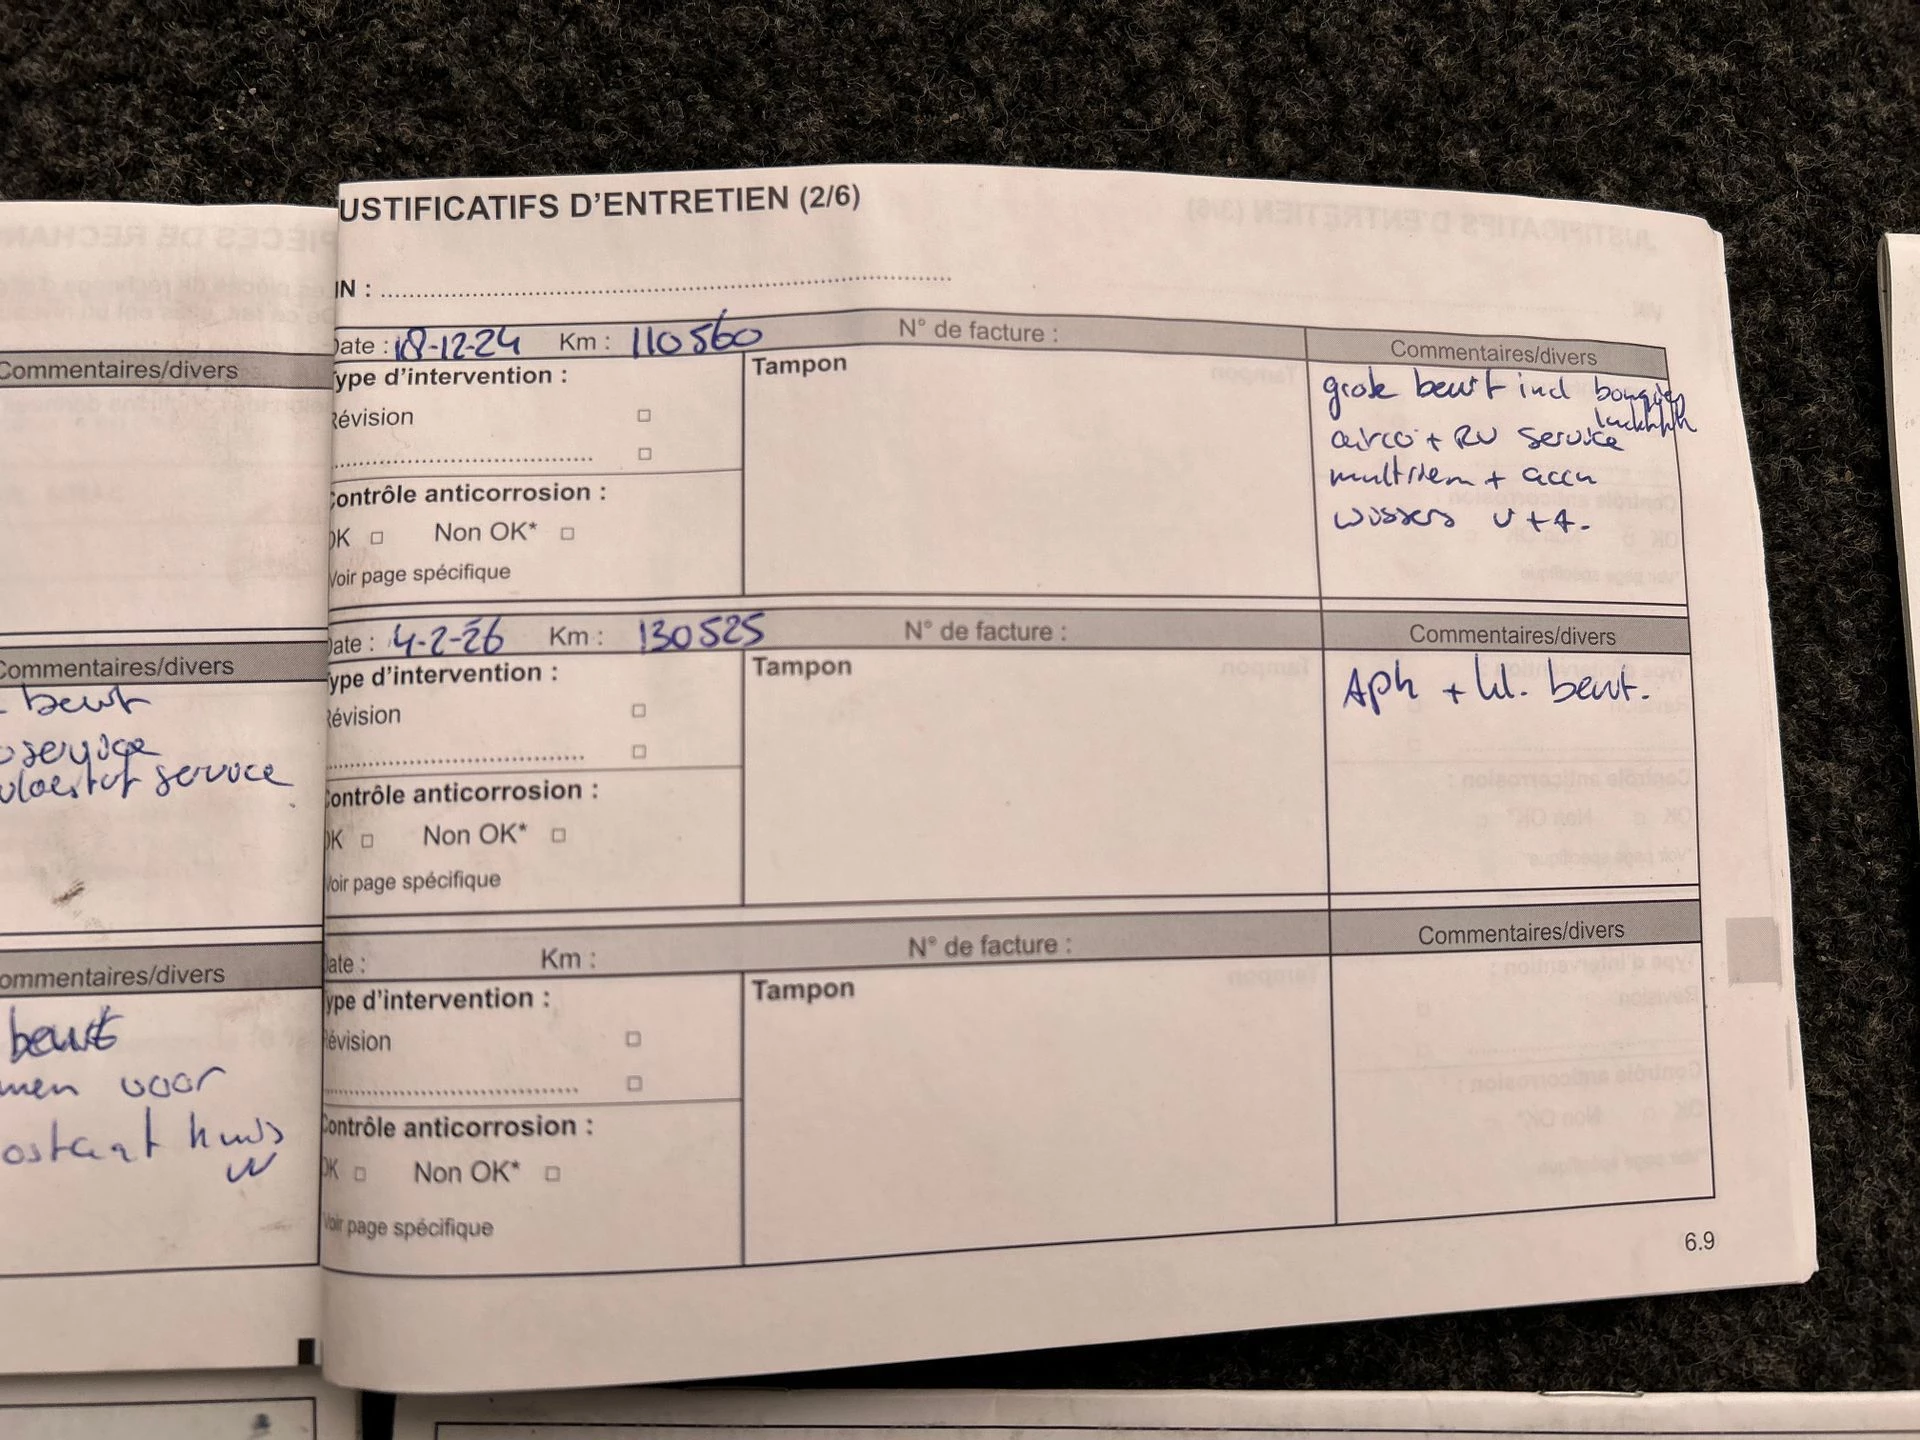 Commentaires/divers
Commentaires/divers
beurt
service
vloeistof service
ommentaires/divers
beurt
men voor
huis
USTIFICATIFS D'ENTRETIEN (2/6)
IN :
Date : 18-12-24 Km : 110560 N° de facture : Commentaires/divers
Type d'intervention :
Révision
Contrôle anticorrosion :
OK Non OK*
Voir page spécifique
Tampon
grote beurt incl bougies
luchtfilt
airco + RV service
multiriem + accu
wissers V+A.
Date : 4-2-26 Km : 130525 N° de facture : Commentaires/divers
Type d'intervention :
Révision
Contrôle anticorrosion :
OK Non OK*
Voir page spécifique
Tampon
Apk + kl. beurt.
Date : Km : N° de facture : Commentaires/divers
Type d'intervention :
Révision
Contrôle anticorrosion :
OK Non OK*
Voir page spécifique
Tampon
6.9